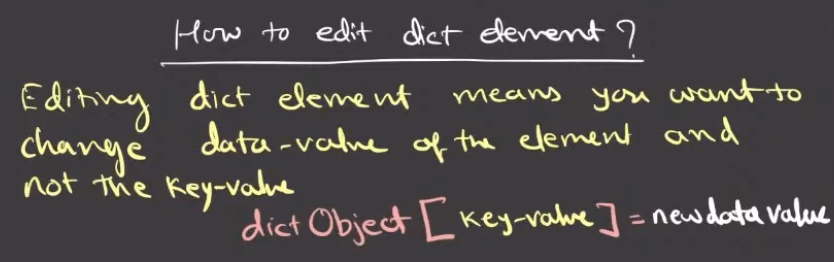 How to edit dict element?
Editing dict element means you want to
change data-value of the element and
not the key-value
dict Object [key-value] = new data value